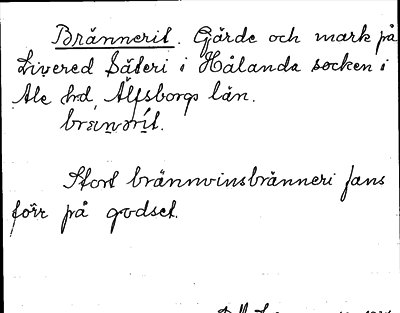 Brännerit. Gärde och mark på
Livered Säteri i Hålanda socken i
Ale hd, Älfsborgs län.
Stort brännvinsbränneri fans
förr på godset.